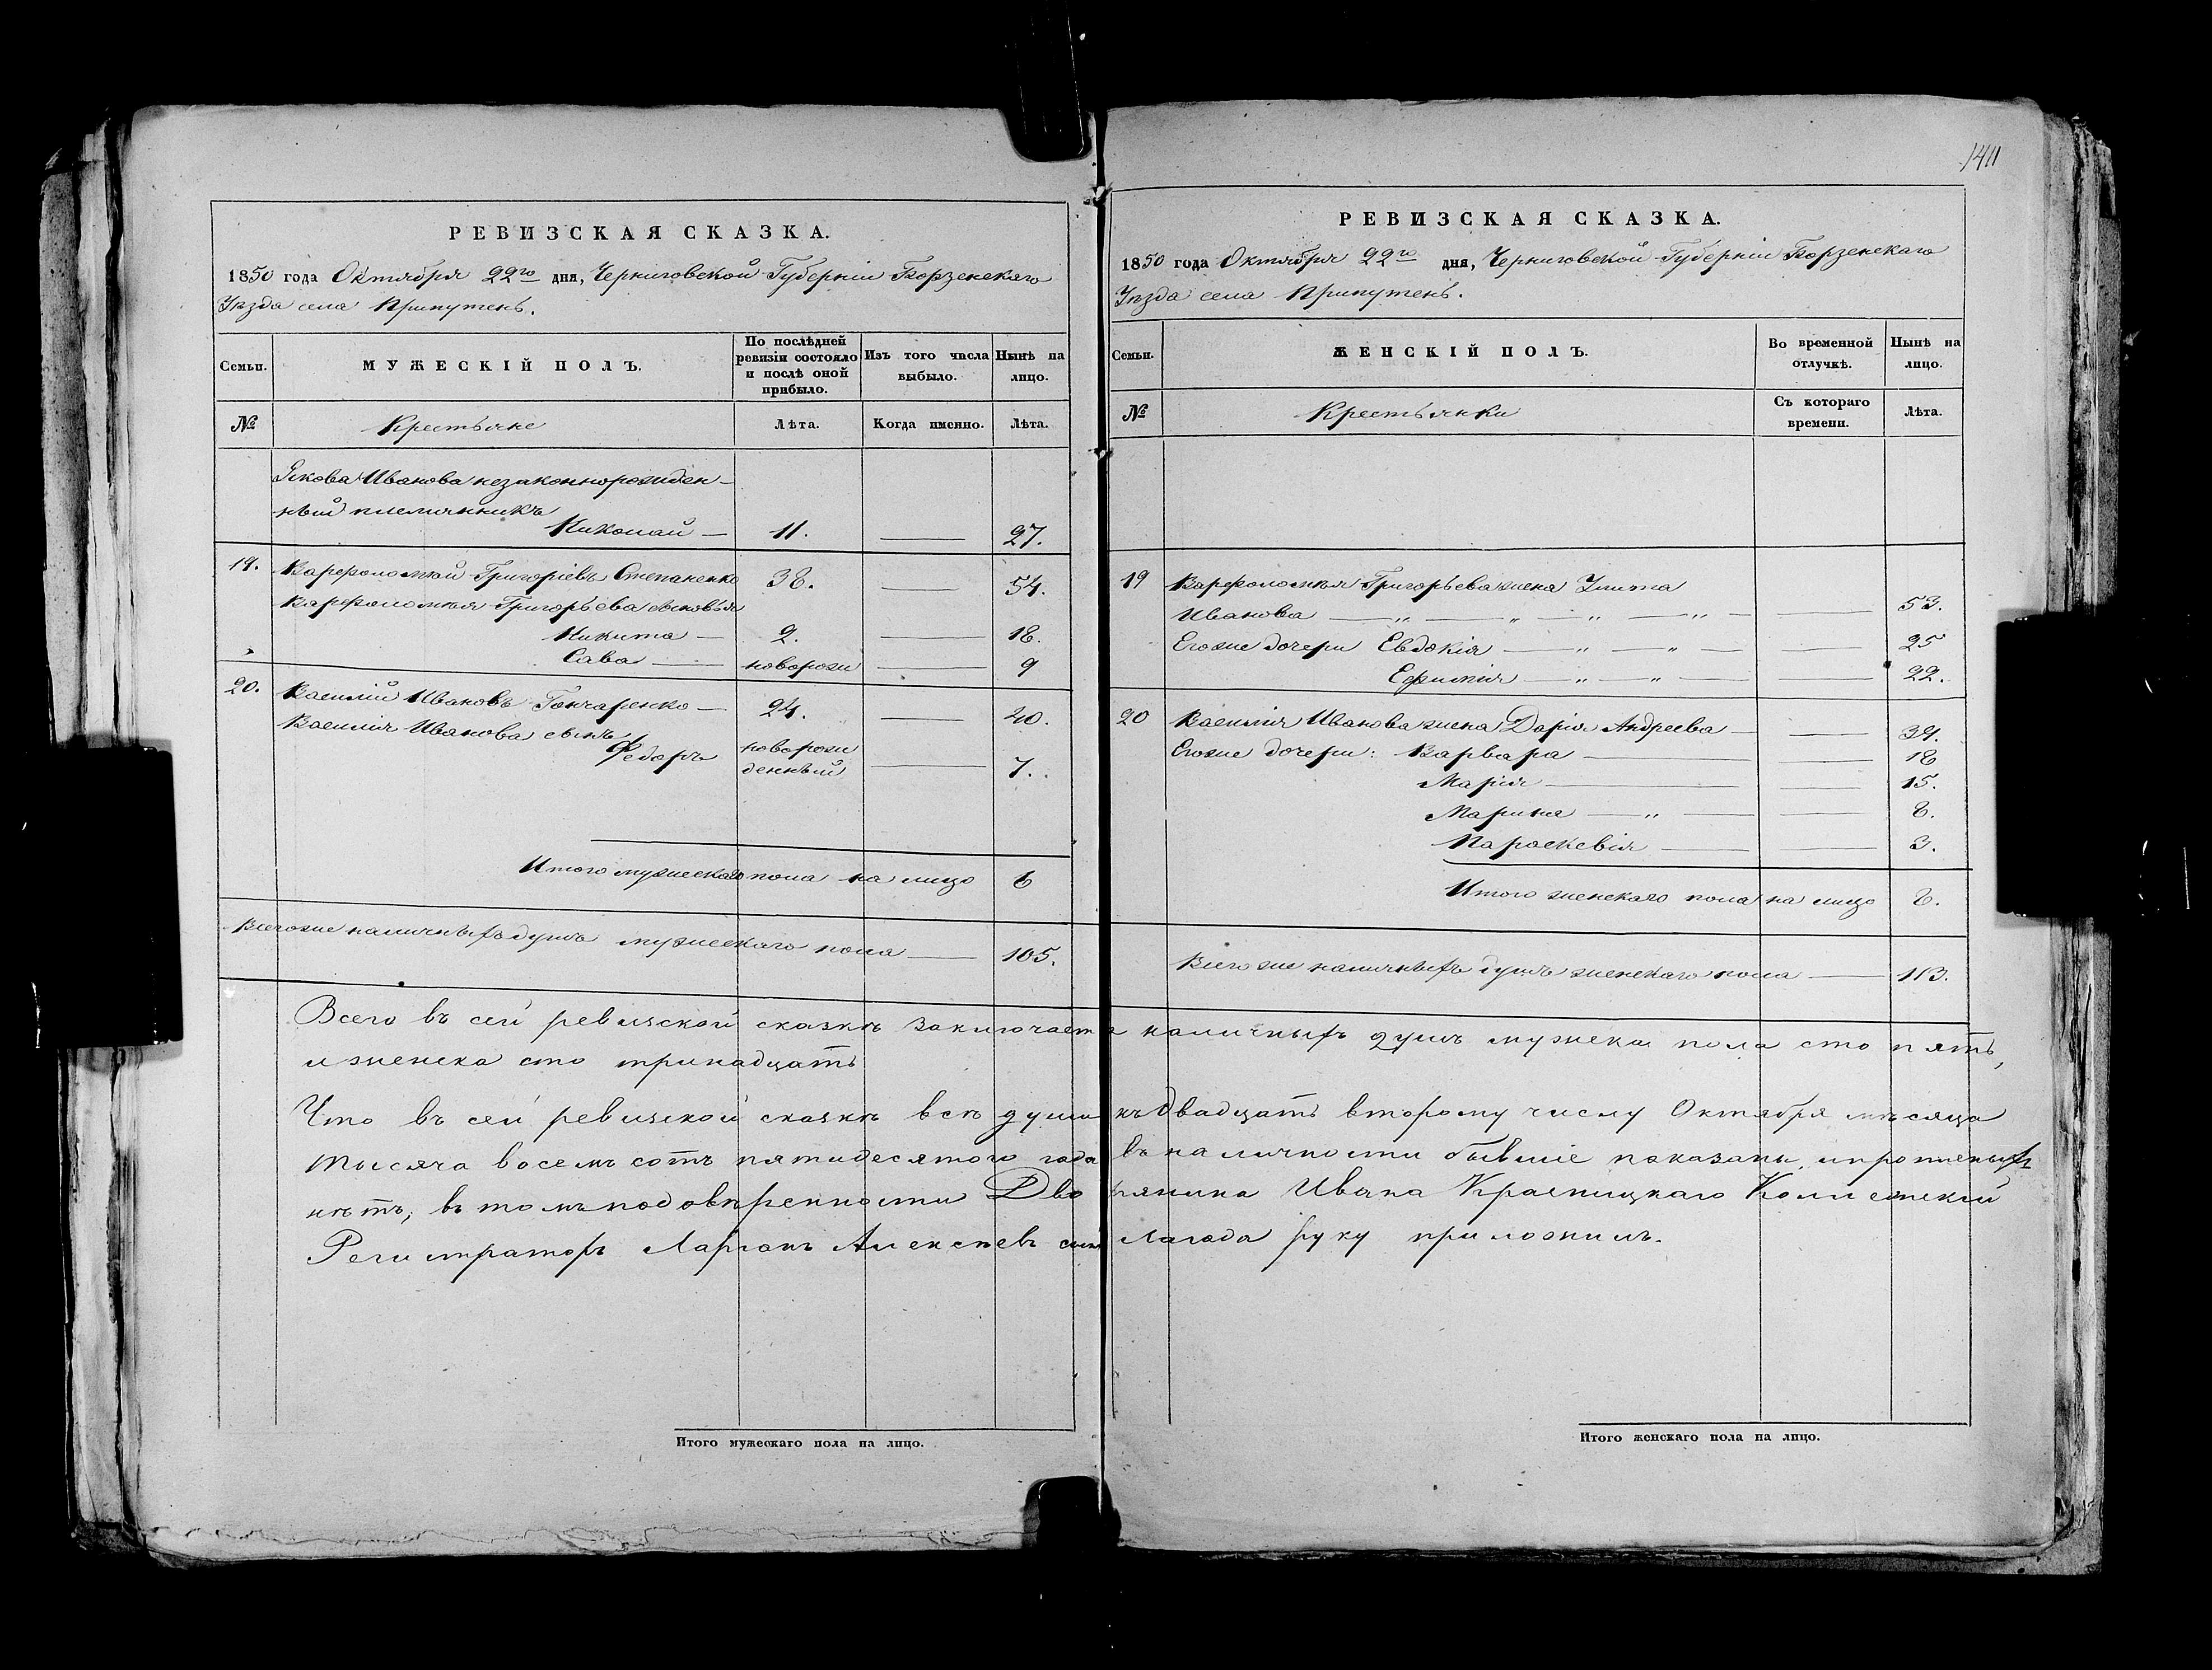 1411
РЕВИЗСКАЯ СКАЗКА.
1850 года Октября 22го дня, Черниговской Губерніи Борзенскаго
Уѣзда села Припутень.
Семьи.
МУЖЕСКІЙ ПОЛЪ.
По послѣдней ревизіи состояло и послѣ оной прибыло.
Изъ того числа выбыло.
Нынѣ на лицо.
№
Крестьяне
Лѣта.
Когда именно.
Лѣта.
Якова Иванова незаконнорожден-
ный племянникъ
Николай — 11. — 27.
19. Варфоломѣй Григоріевъ Степаненко 38. — 54.
Варфоломѣя Григорьева сыновья
Никита — 2. — 18.
Сава — новорож — 9
20. Василій Ивановъ Гончаренко — 24. — 40.
Василія Иванова сынъ
Федоръ новорож
денный — 7.
Итого мужескаго пола на лицо 6
Всего же наличныхъ душъ мужескаго пола — 105.
РЕВИЗСКАЯ СКАЗКА.
1850 года Октября 22го дня, Черниговской Губерніи Борзенскаго
Уѣзда села Припутень.
Семьи.
ЖЕНСКІЙ ПОЛЪ.
Во временной отлучкѣ.
Нынѣ на лицо.
№
Крестьянки
Съ котораго времени.
Лѣта.
19 Варфоломѣя Григорьева жена Улита
Иванова — „ — „ — „ — „ — — 53.
Его же дочери Евдокія — „ — „ — — 25
Ефимія — „ — „ — — 22.
20 Василія Иванова жена Дарія Андреева — — 39.
Его же дочери: Варвара — — 18
Марія — — 15.
Марина — „ — — 8.
Параскевія — — 3.
Итого женскаго пола на лицо 8.
Всего же наличныхъ душъ женскаго пола — 113.
Всего въ сей ревизской сказкѣ заключается наличныхъ душъ мужеска пола сто пять,
и женска сто тринадцать
Что въ сей ревизской сказкѣ всѣ души къ двадцать второму числу Октября мѣсяца
тысяча восемь сотъ пятидесятого года въ наличности бывшіе показаны, и прописныхъ
нѣтъ, въ томъ по довѣренности Дворянина Ивана Коллежскій
Регистраторъ Ларіонъ Алексѣевъ сынъ Лагода руку приложилъ.
Итого мужескаго пола на лицо.
Итого женскаго пола на лицо.